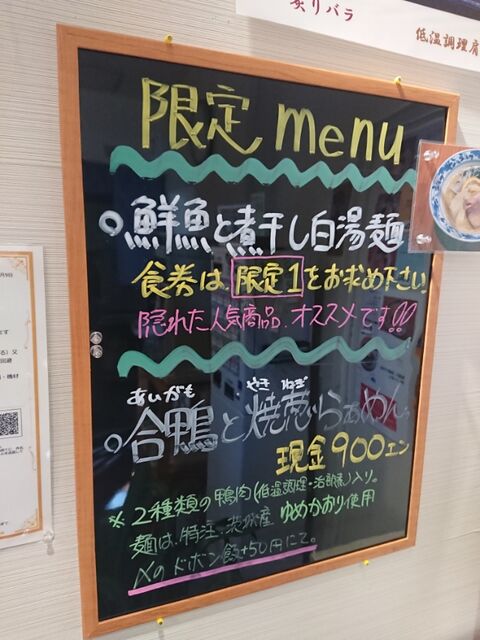 炙りバラ
低温調理肩
限定 menu
○鮮魚と煮干し白湯麺
食券は、限定1をお求め下さい!
隠れた人気商品、オススメです!!
あいがも やき ねぎ
○合鴨と焼葱らぁめん。
現金900エン
※2種類の鴨肉(低温調理・治部煮)入り。
麺は、特注・茨城産 ゆめかおり使用
〆のドボン飯+50円にて。